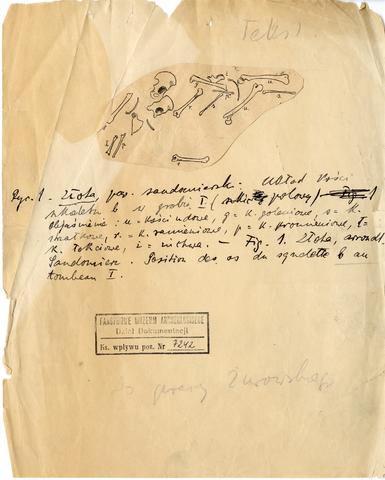 Tekst
Ryc. 1. Złota, pow. sandomierski. Układ kości
szkieletu b w grobie I (szkic polowy)
Objaśnienie: u = kości udowe, g = k. goleniowe, s = k.
strzałkowe, r. = k. ramieniowe, p = k. promieniowe, ł =
k. łokciowe, ż = żuchwa. — Fig. 1. Złota, arrond.
Sandomierz. Position des os du squelette b au
tombeau I.
PAŃSTWOWE MUZEUM ARCHEOLOGICZNE
Dział Dokumentacji
Ks. wpływu poz. Nr 7242
pracy Żurowskiego